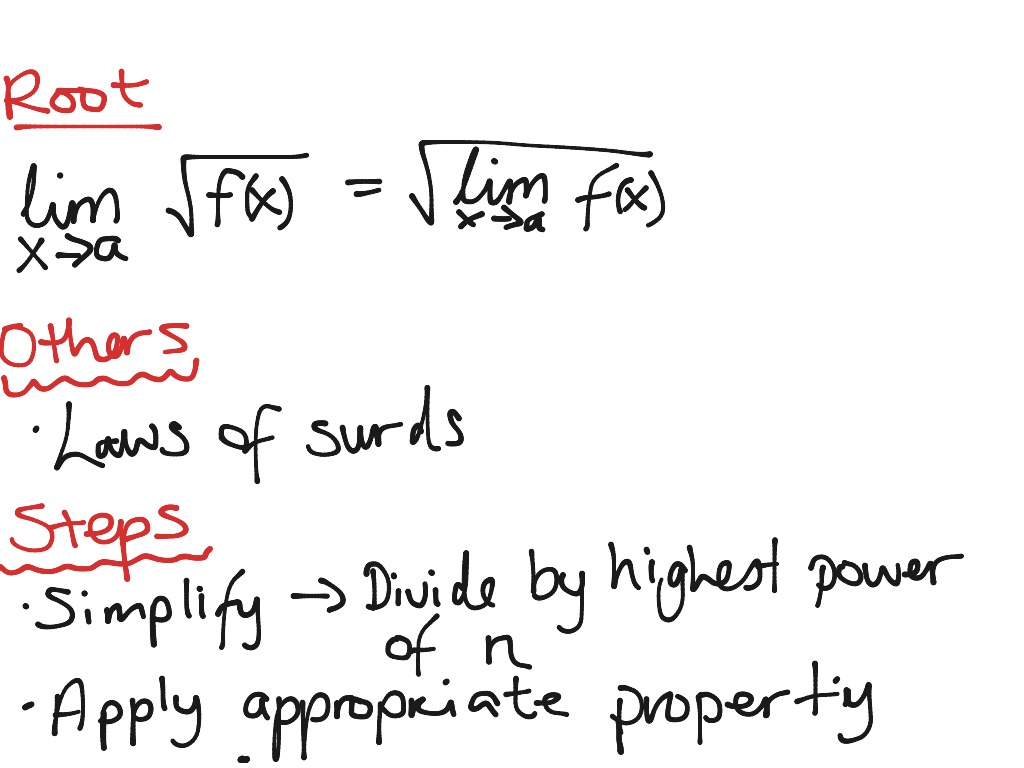 Root
lim x→a √f(x) = √lim x→a f(x)
Others
· Laws of surds
Steps
· Simplify → Divide by highest power
of n
· Apply appropriate property